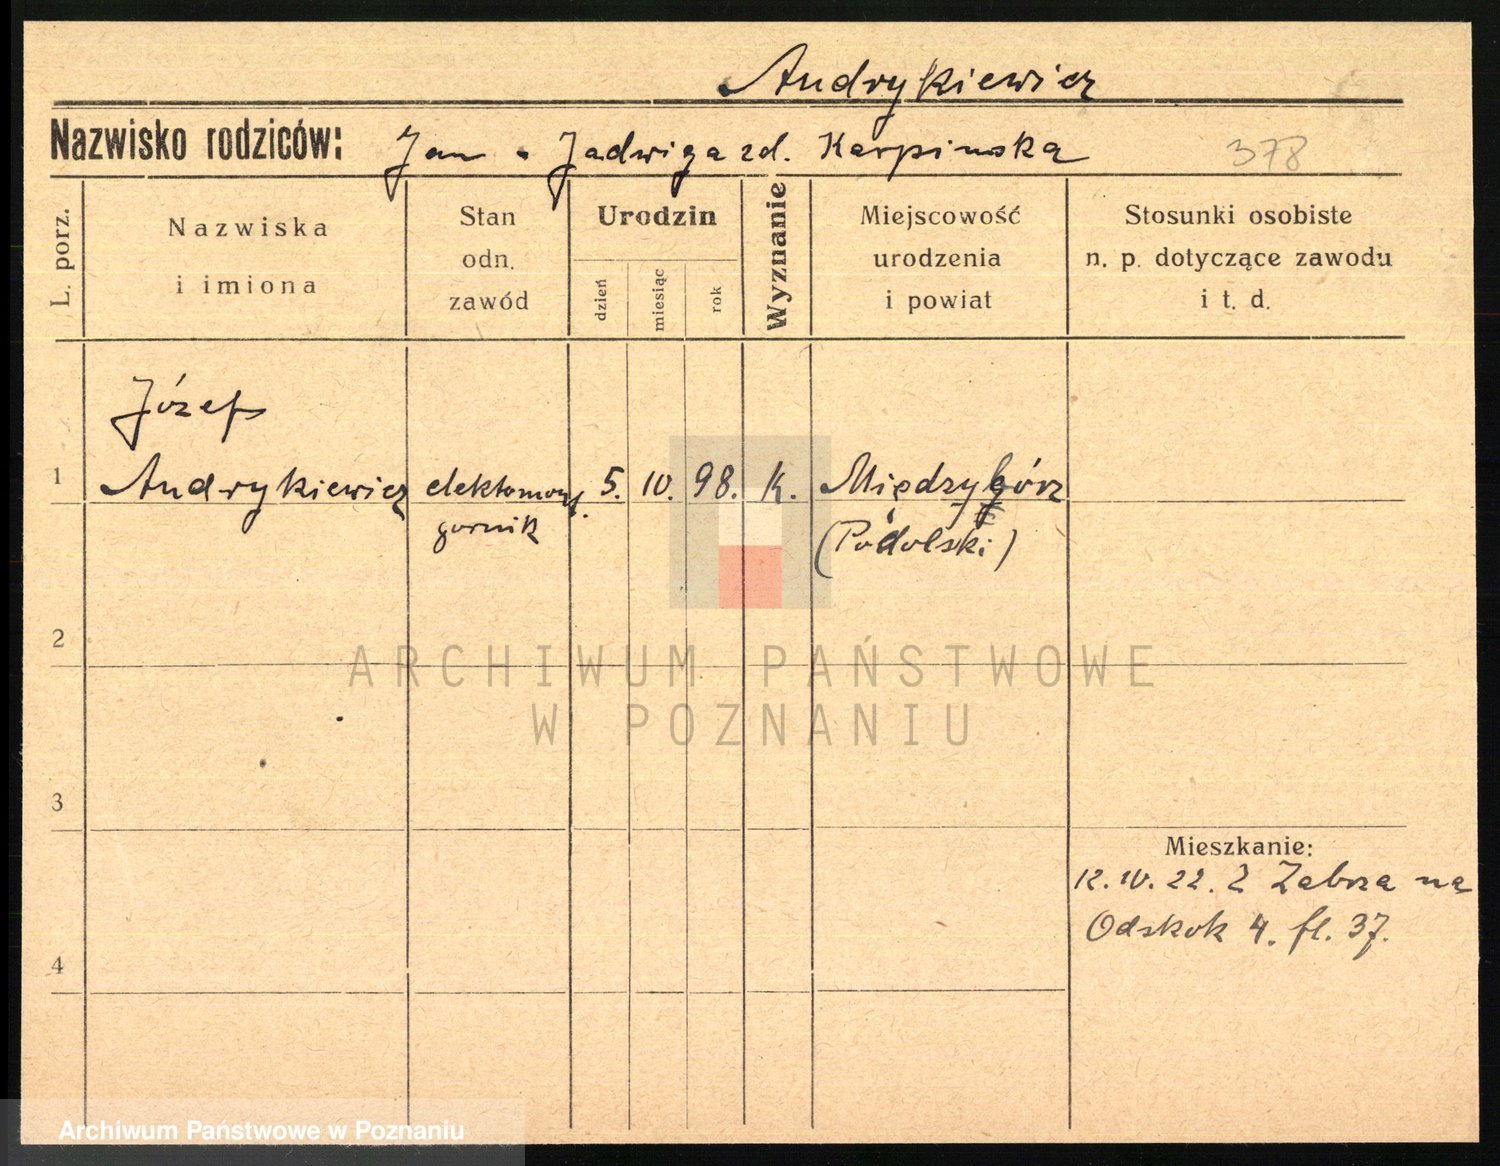 Andrykiewicz
Nazwisko rodziców: Jan - Jadwiga zd. Karpińska 378
L. porz.
Nazwiska
i imiona
Stan
odn.
zawód
Urodzin
dzień
miesiąc
rok
Wyznanie
Miejscowość
urodzenia
i powiat
Stosunki osobiste
n. p. dotyczące zawodu
i t. d.
Józef
1 Andrykiewicz elektomont. 5. IV. 98. K. Międzygórz
gornik (Podolski)
2
3
4
Mieszkanie:
12. IV. 22. Z Zabrza na
Odskok 4. fl. 37.
ARCHIWUM PAŃSTWOWE
W POZNANIU
Archiwum Państwowe w Poznaniu